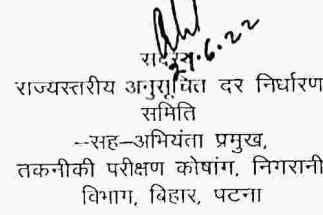 27.6.22
सदस्य
राज्यस्तरीय अनुसूचित दर निर्धारण
समिति
--सह-अभियंता प्रमुख,
तकनीकी परीक्षण कोषांग, निगरानी
विभाग, बिहार, पटना